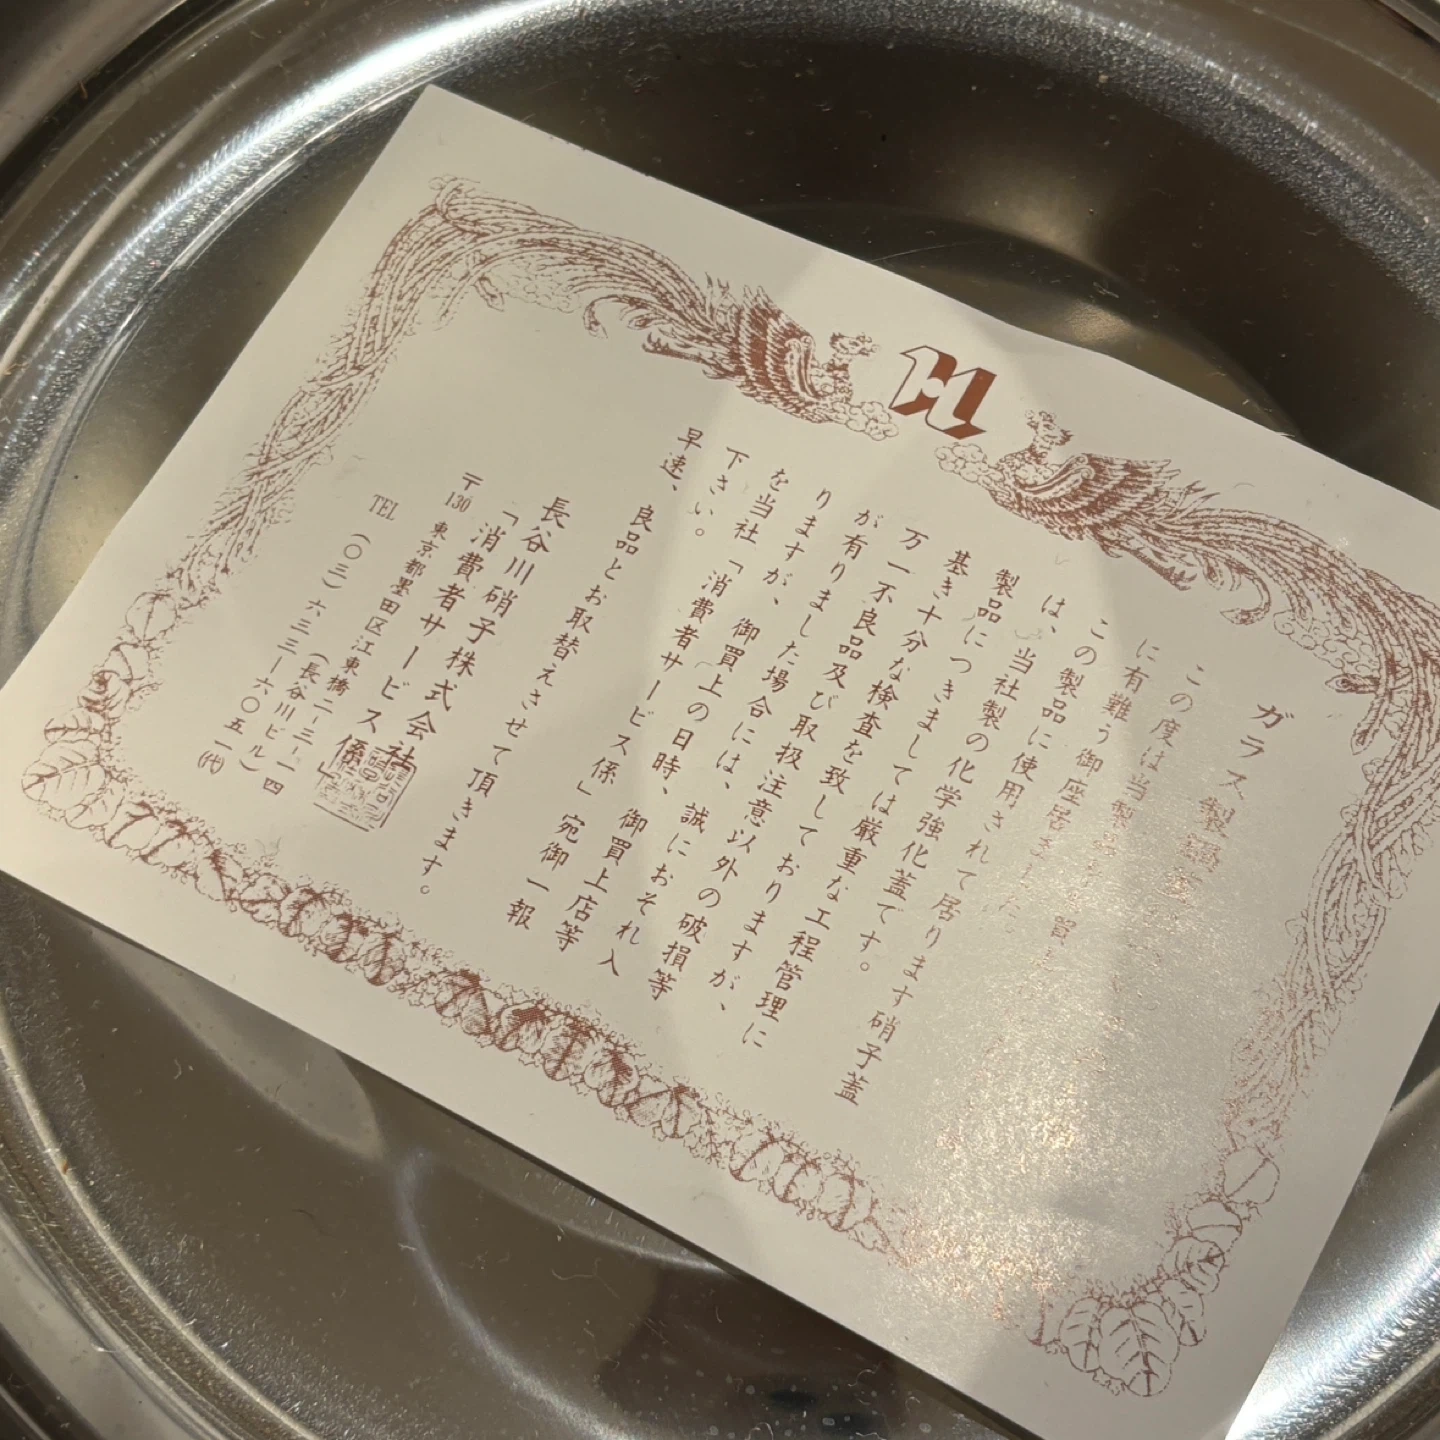 ガラス製
この度は当製品を
に有難う御座居ました
この製品に使用されて居ります硝子蓋
は、当社製の化学強化蓋です。
製品につきましては厳重な工程管理に
基き十分な検査を致しておりますが、
万一不良品及び取扱注意以外の破損等
が有りました場合には、誠におそれ入
りますが、御買上の日時、御買上店等
を当社「消費者サービス係」宛御一報
下さい。
早速、良品とお取替えさせて頂きます。
長谷川硝子株式会社
「消費者サービス係」
〒130 東京都墨田区江東橋二ー三ー一四
(長谷川ビル)
TEL (〇三)六三三ー六〇五一(代)